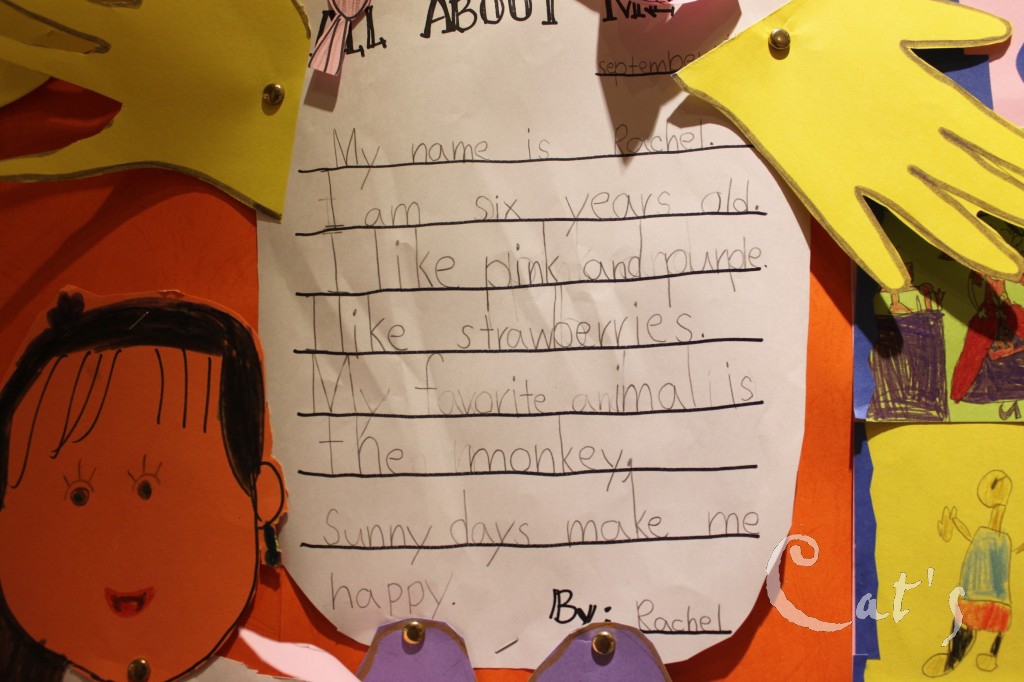 ALL ABOUT ME
september
My name is Rachel.
I am six years old.
I like pink and purple.
I like strawberries.
My favorite animal is
the monkey,
sunny days make me
happy.
By: Rachel
Cat's